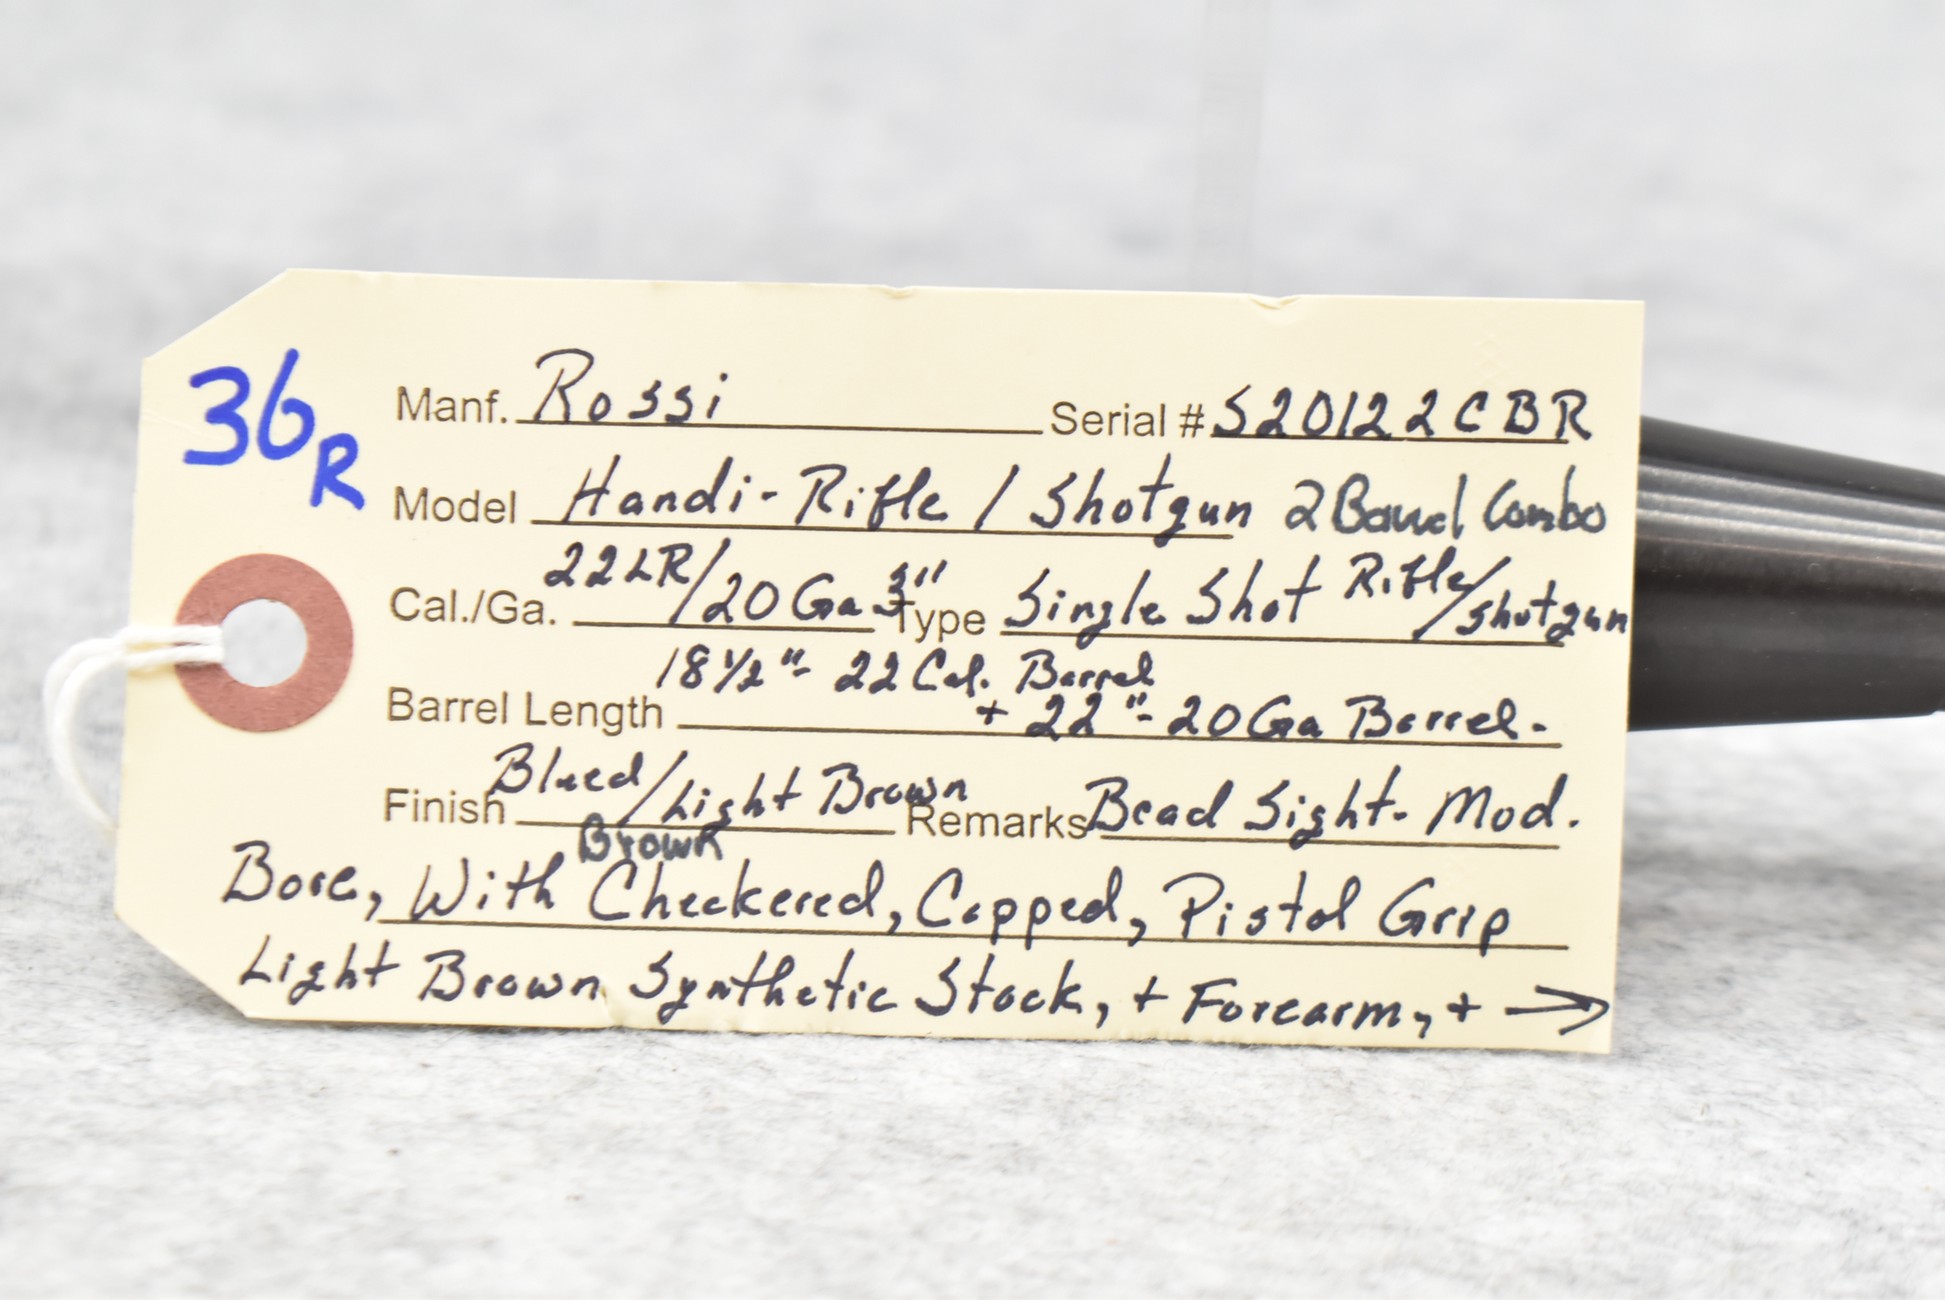 36R
Manf. Rossi Serial # S20122CBR
Model Handi-Rifle / Shotgun 2 Barrel Combo
Cal./Ga. 22LR/20 Ga 3" Type Single Shot Rifle/Shotgun
18 1/2"- 22 Cal. Barrel
Barrel Length + 22"- 20 Ga Barrel.
Finish Blued/Light Brown Remarks Bead Sight- Mod.
Brown
Bore, With Checkered, Capped, Pistol Grip
Light Brown Synthetic Stock, + Forearm, + →